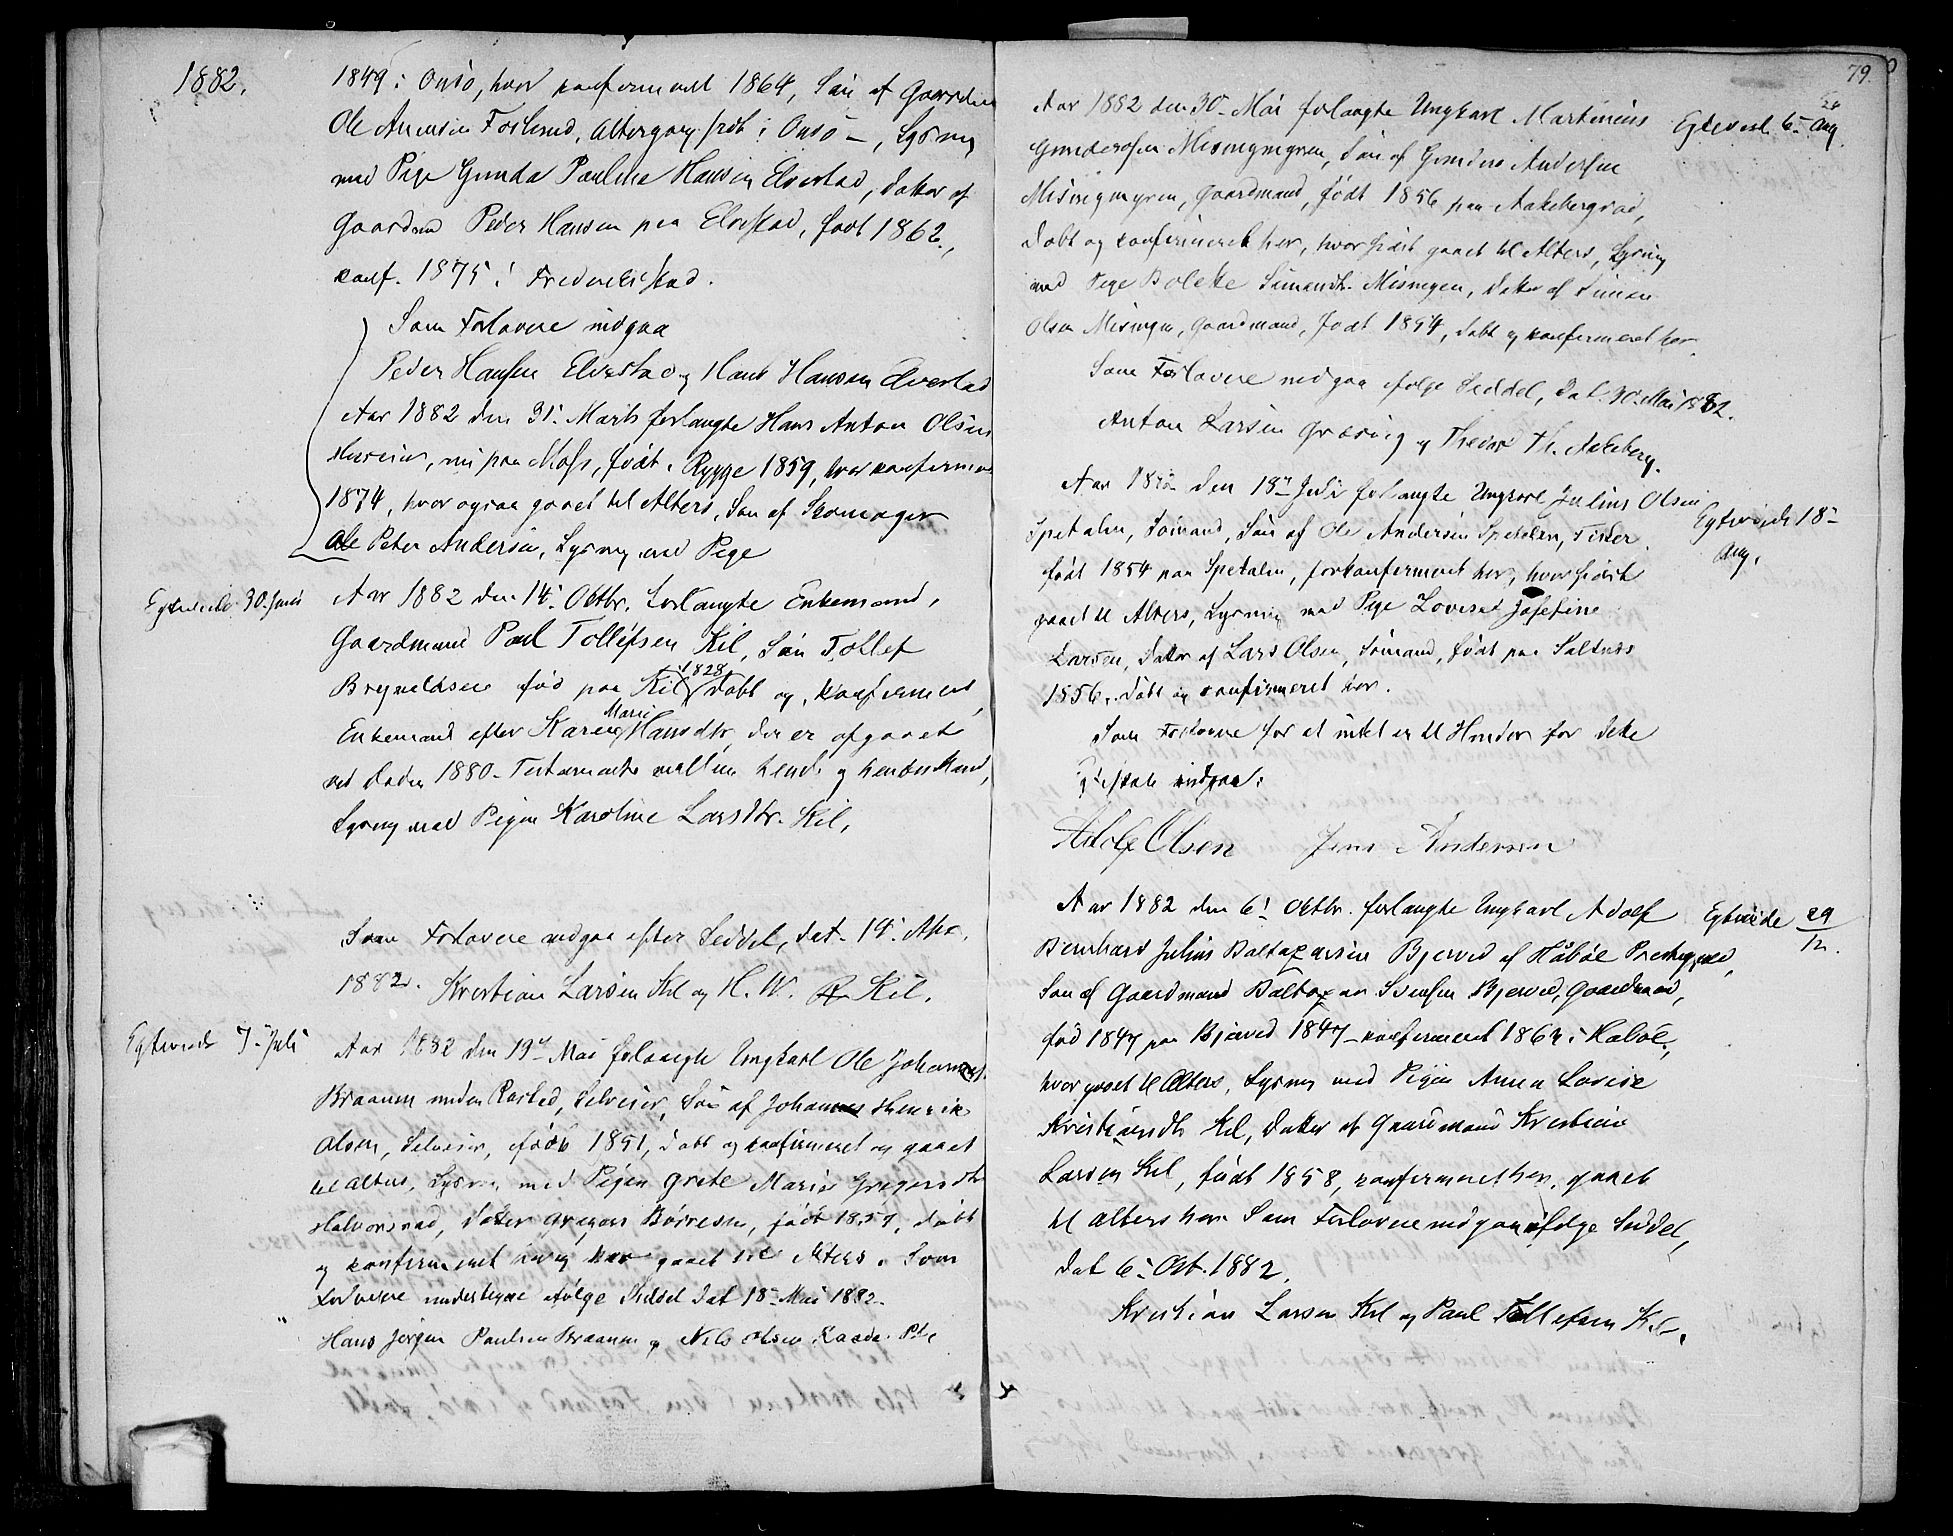 1882.
1849 i Onsö, hvor konfirmeret 1864, Sön af Gaardm
Ole Arensen Foslund, Altergang sidst i Onsö –, Lysning
med Pige Gunda Pauline Hansen Elvestad, Datter af
Gaardm Peder Hansen paa Elvestad, født 1862.,
conf. 1875 i Frederikstad.
Som Forlovere indgaa
Peder Hansen Elvestad og Hans Hansen Elvestad
Aar 1882 den 31. Marts forlangte Hans Anton Olsen
Husvier, nu paa Moss, født i Rygge 1859, hvor konfirmeret
1874, hvor ogsaa gaaet til Alters, Søn af Skomager
Ole Peter Andersen, Lysning med Pige
Egteviede 30. Juni
Aar 1882 den 14. Oktbr. forlangte Enkemand,
Gaardmand Paul Tollefsen Kil, Søn Tollef
Brynildsen fød paa Kil 1828 døbt og konfirmeret,
Enkemand efter Karen Marie Hansdtr, der er afgaaet
ved Døden 1880 – Testamente mellem hende og hendes Mand,
Lysning med Pigen Karoline Larsdtr. Kil,
Som Forlovere indgaa efter Seddel, dat. 14. Apr.
1882. Kristian Larsen Kil og H. W. Kil.
Egteviede 7. Juli
Aar 1882 den 19. Mai forlangte Ungkarl Ole Johannes.
Braanum under Rosted, Selveier, Søn af Johannes Henrik
Olsen, Selveier, født 1851, døbt og konfirmeret og gaaet
til Alters, Lysning med Pigen Grete Marie Gregersdtr
Halvorsrød, datter Gregers Børresen, født 1857, døbt
og konfirmeret gaaet til Alters. Som
Forlovere undertegne ifølge Seddel dat 18. Mai 1882.
Hans Jørgen Paulsen Braanum og Nils Olsen Raade Pdt
79.
Aar 1882 den 30. Mai forlangte Ungkarl Martinius
Gundersen Misingmyren, Søn af Gunder Andersen
Misingmyren, Gaardmand, født 1856 paa Aakebergrød,
døbt og konfirmeret her, hvor sidst gaaet til Alters, Lysning
med Pige Bolette Simensdtr. Misingen, datter af Simen
Olsen Misingen, Gaardmand, født 1854, døbt og konfirmeret her.
Egteviede 6. Aug.
Som Forlovere indgaa ifølge Seddel, dat. 30. Mai 1882.
Anton Larsen Grøsing og Theodor Th. Aakeberg.
Aar 1882 den 18. Juli forlangte Ungkarl Julius Olsen
Spetalen, Sömand, Sön af Ole Andersen Spetalen, Fisker
født 1854 paa Spetalen, konfirmeret her, hvor sidst
gaaet til Alters, Lysning med Pige Lovise Josefine
Larsen, datter af Lars Olsen, Sömand, født paa Saltnes
1856, døbt og konfirmeret her.
Egteviede 18.
Aug.
Som Forlovere for at intet er til Hinder for dette
Egteskab indgaa:
Adolf Olsen Jens Andersen
Aar 1882 den 6. Oktbr. forlangte Ungkarl Adolf
Bernhard Julius Baltazarsen Bjerved af Haabøl Prestegjeld,
Søn af Gaardmand Baltazar Svensen Bjerved, Gaardmand,
fød 1847 paa Bjerved 1847 – konfirmeret 1862 i Haabøl,
hvor gaaet til Alters, Lysning med Pigen Anna Lovise
Kristiansdtr Kil, datter af Gaardmand Kristian
Larsen Kil, født 1858, konfirmeret her, gaaet
til Alters her. Som Forlovere indgaa ifølge Seddel,
dat 6. Oct. 1882.
Egteviede 29/12.
Kristian Larsen Kil og Paul Tollefsen Kil.